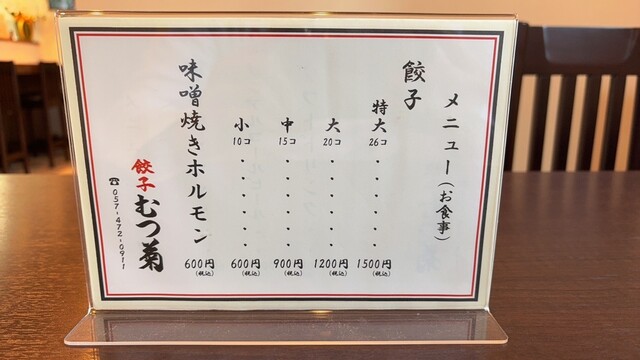 メニュー(お食事)
餃子
特大 26コ・・・・・1500円(税込)
大 20コ・・・・・1200円(税込)
中 15コ・・・・・900円(税込)
小 10コ・・・・・600円(税込)
味噌焼きホルモン 600円(税込)
餃子 むつ菊
☎057-472-0911